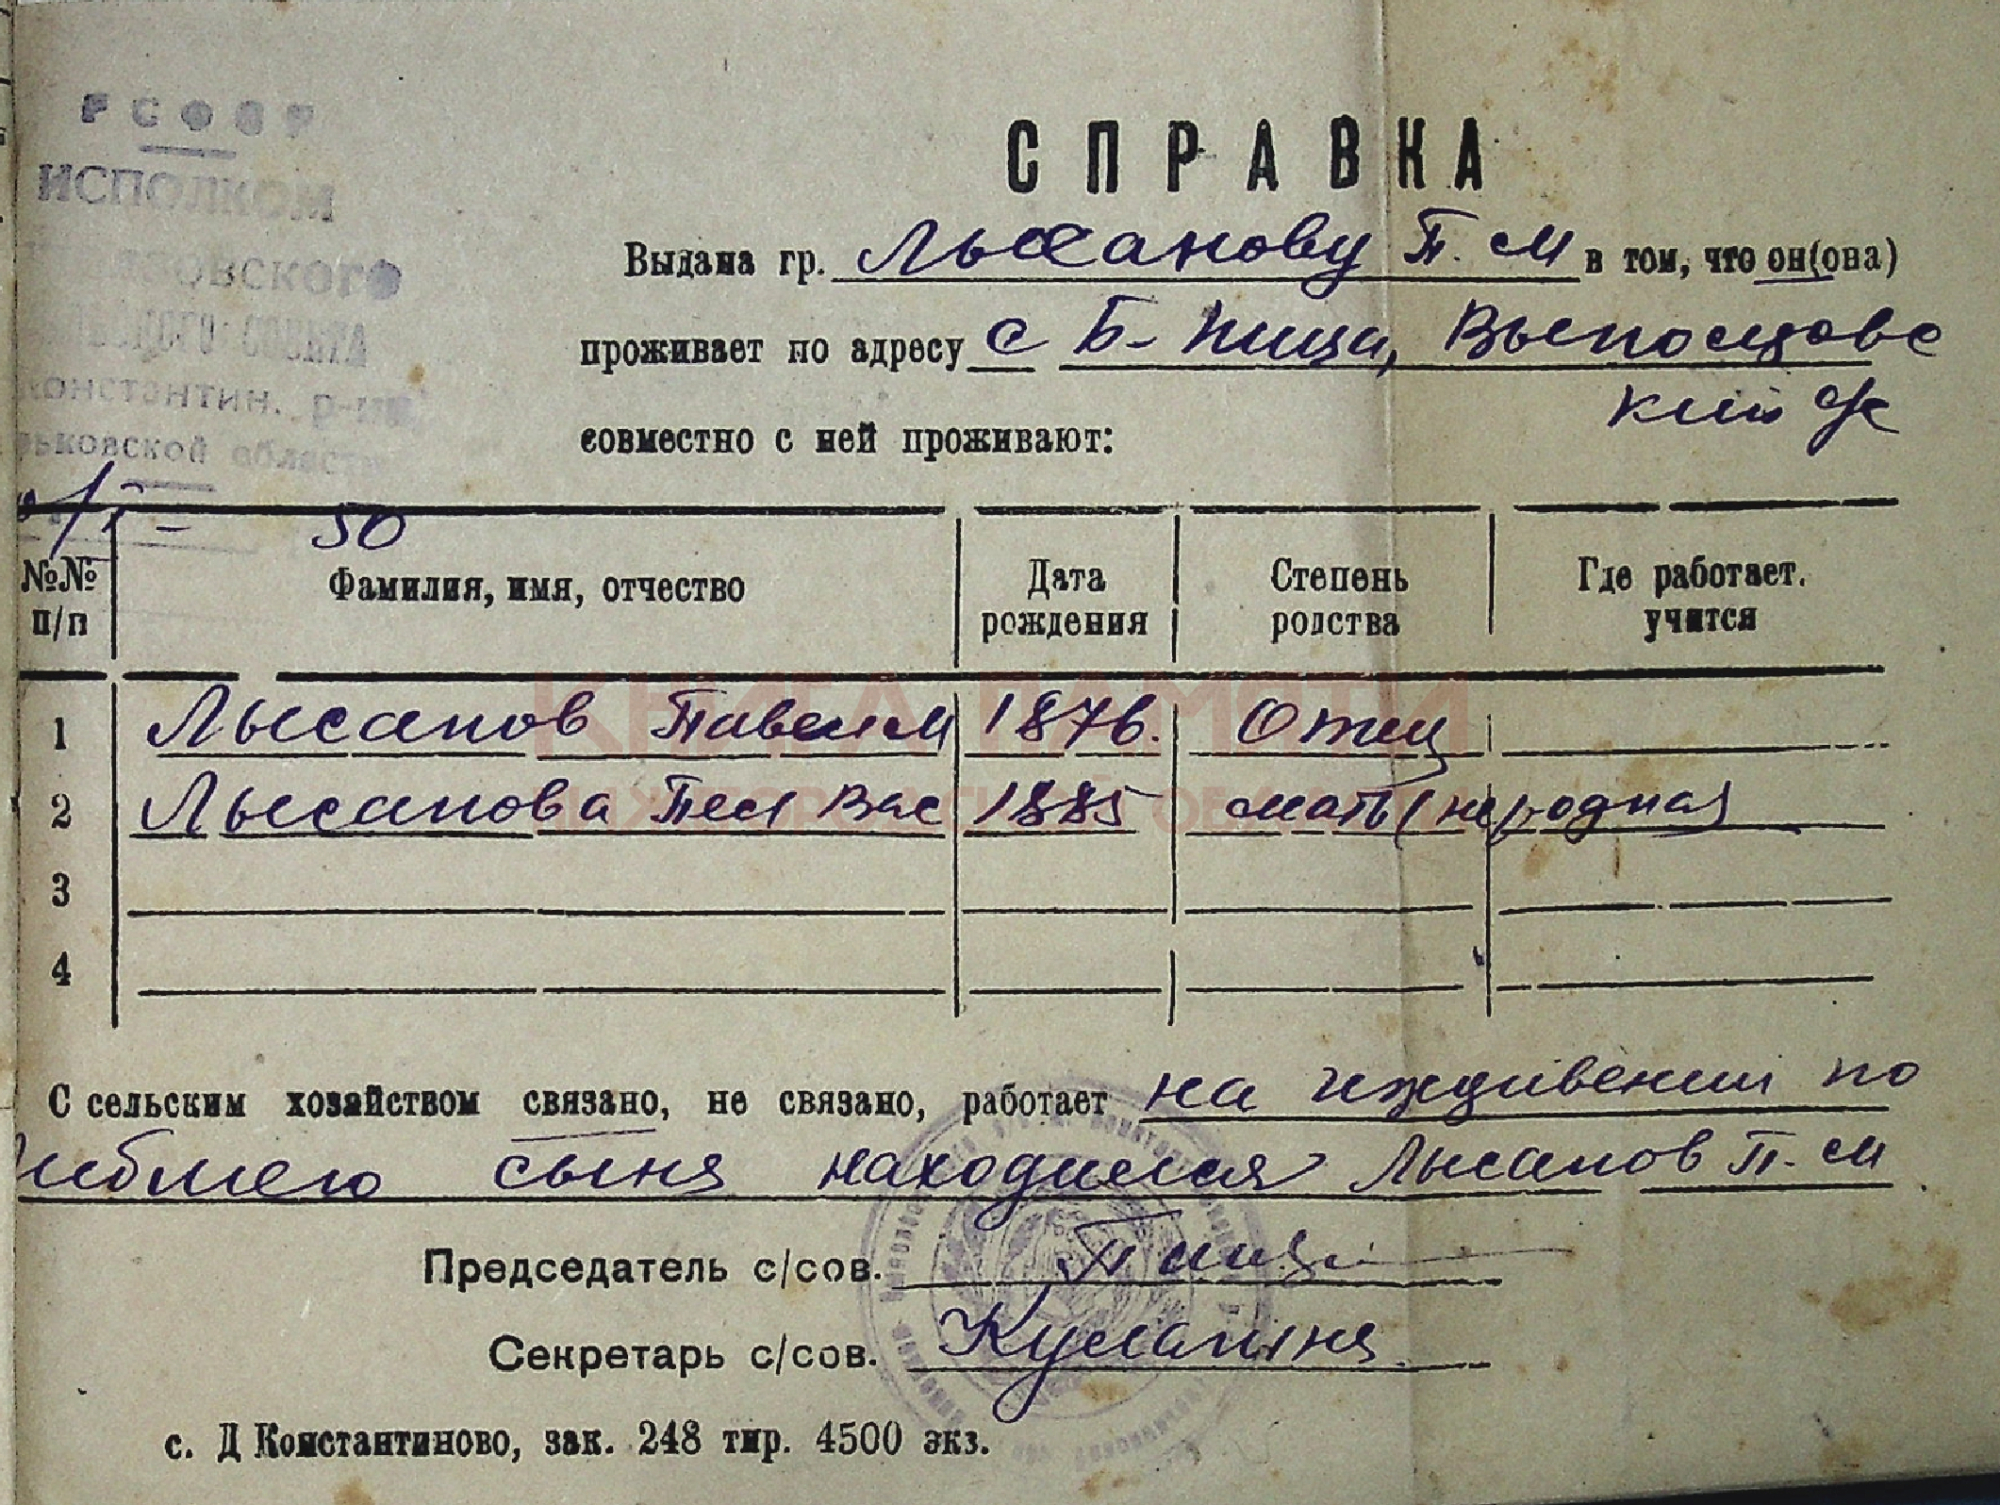 РСФСР
ИСПОЛКОМ
СОВЕТА
Константин. р-на,
области
СПРАВКА
Выдана гр. Лысанову П. М в том, что он(она)
проживает по адресу с Б-Пица,
совместно с ней проживают:
50
№№ п/п Фамилия, имя, отчество Дата рождения Степень родства Где работает. учится
КНИГА ПАМЯТИ
1 Лысанов Павел М 1876. Отец
2 Лысанова Пел Вас 1885 мать (неродная
3
4
С сельским хозяйством связано, не связано, работает на иждивении по
гибшего сына находился Лысанов П. М
Председатель с/сов.
Секретарь с/сов. Кулагина
с. Д Константиново, зак. 248 тир. 4500 экз.